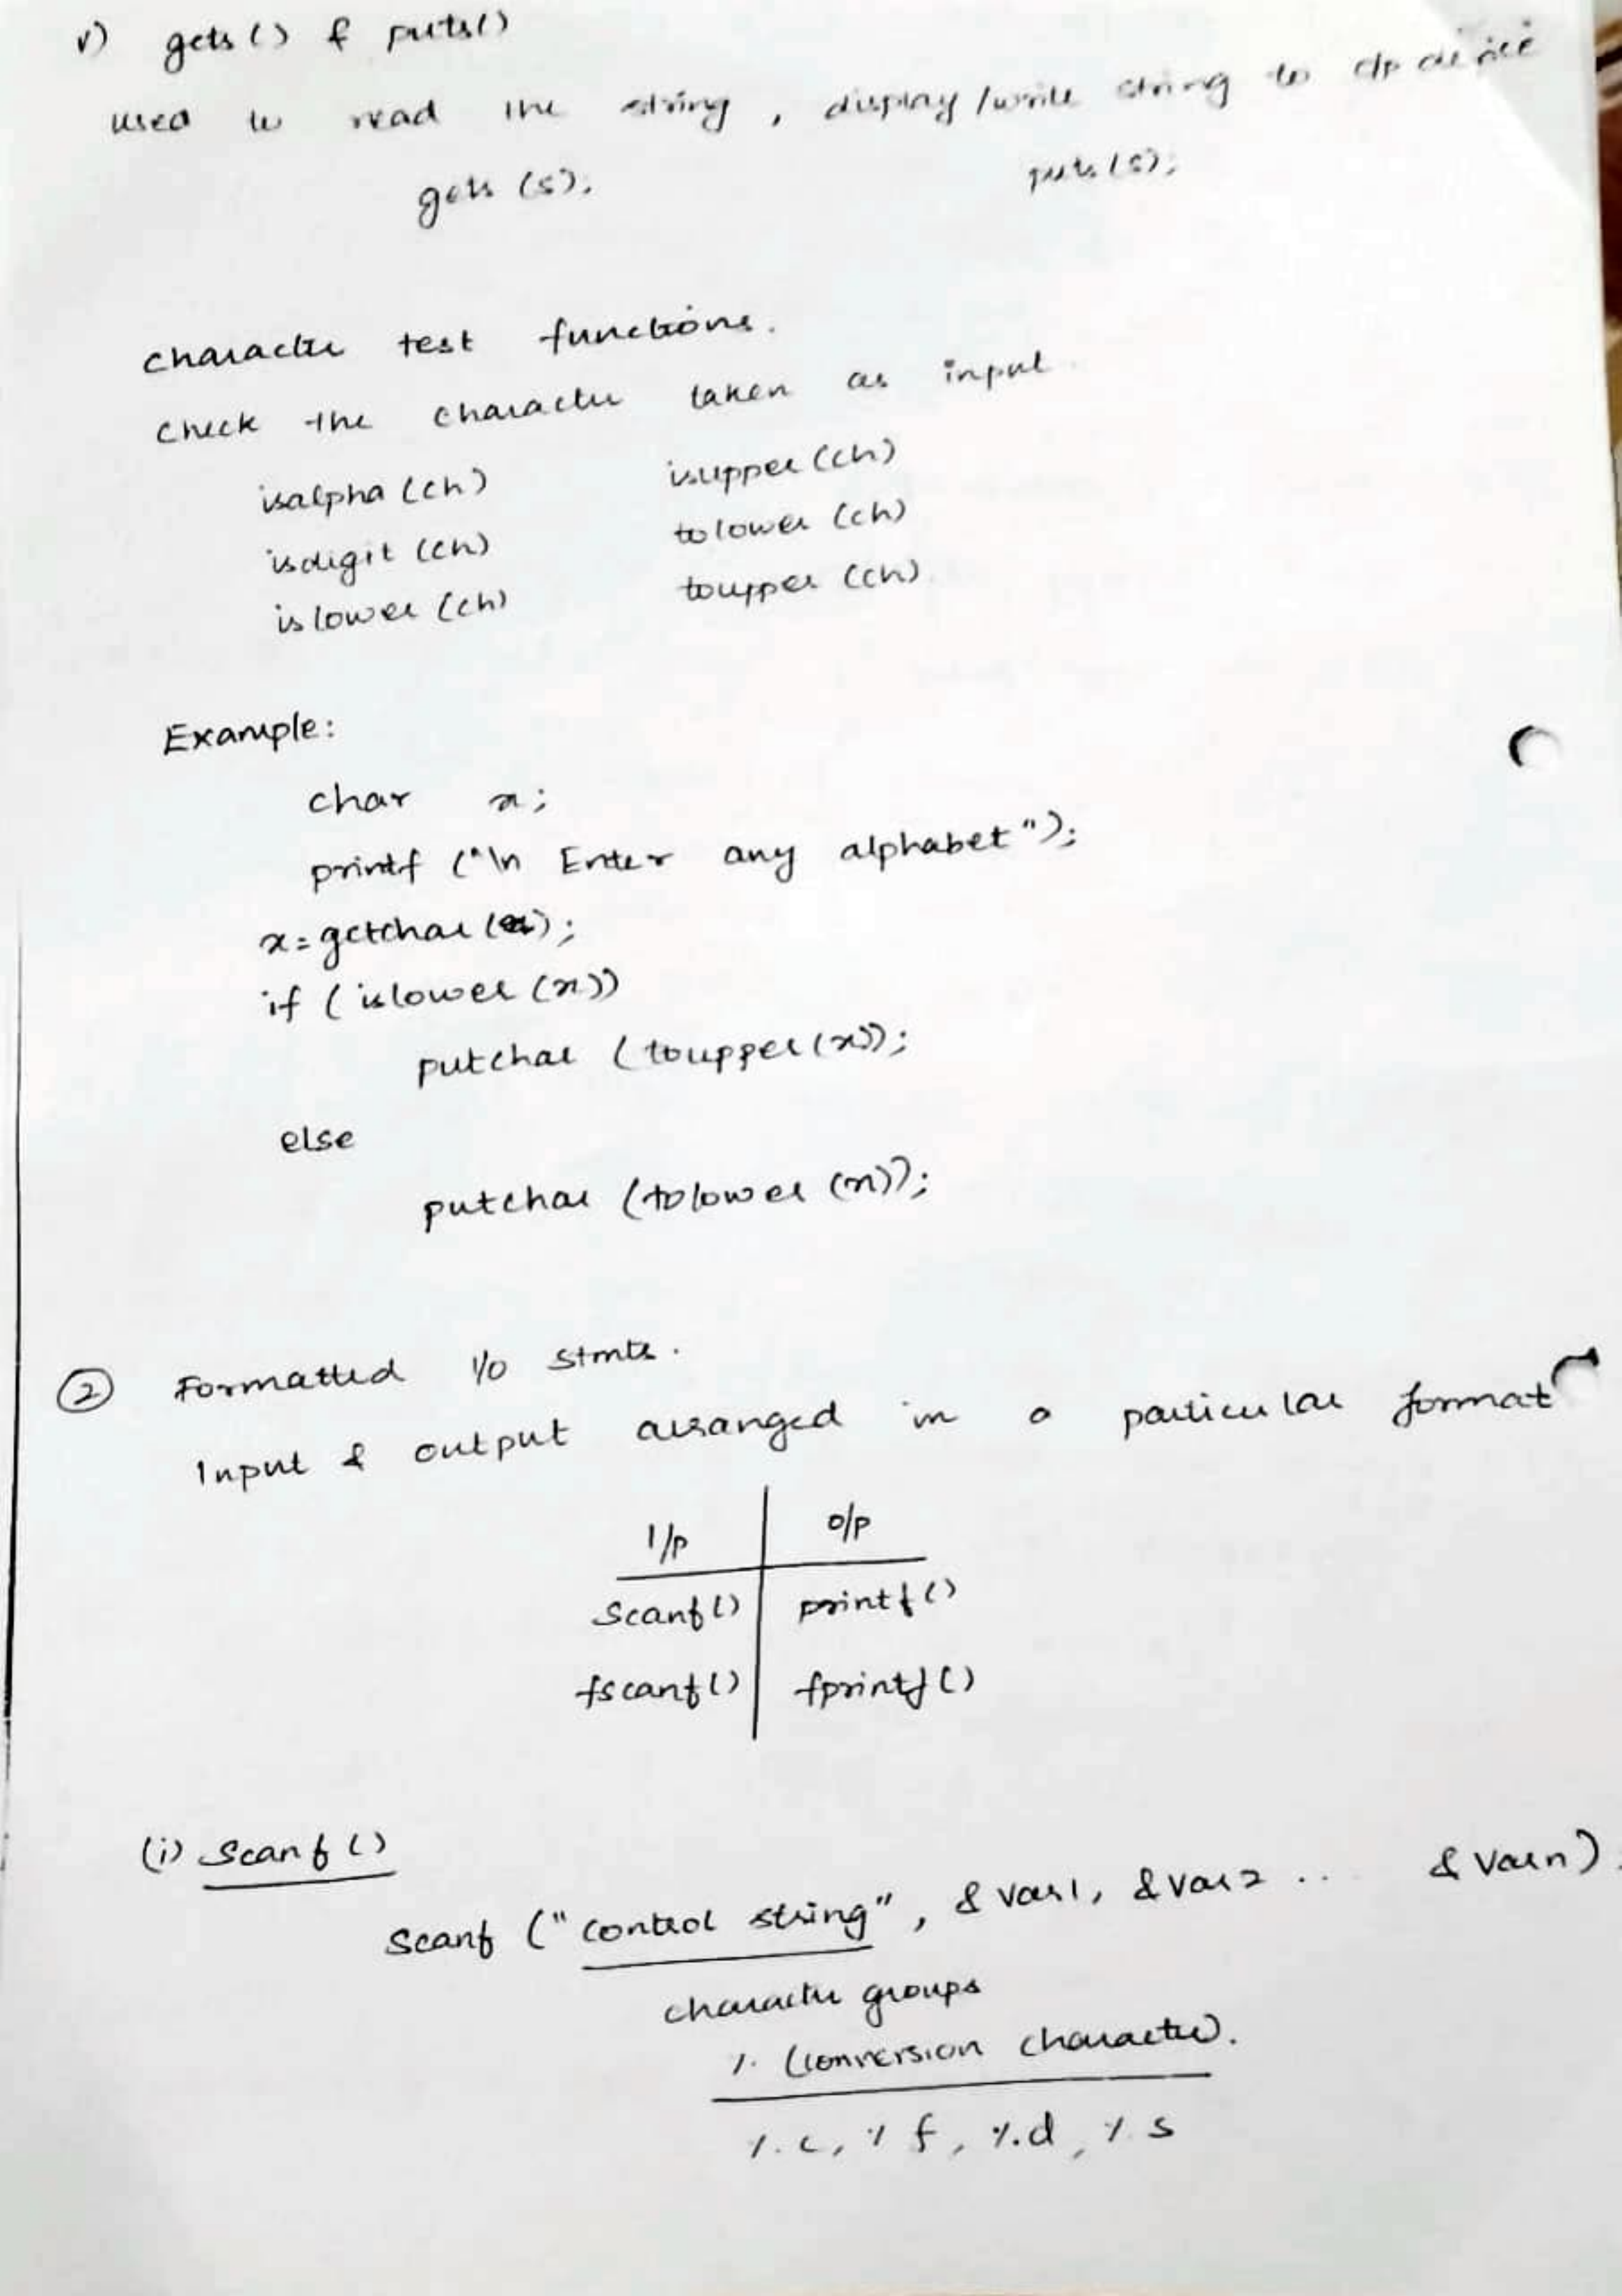 v) gets() & puts()
used to read the string, display/write string to o/p device
gets (s); puts(s);
character test functions.
check the character taken as input.
isalpha (ch) isupper (ch)
isdigit (ch) tolower (ch)
islower (ch) toupper (ch)
Example:
char x;
printf ("\n Enter any alphabet");
x=getchar();
if (islower (x))
putchar (toupper(x));
else
putchar (tolower (x));
② Formatted I/O stmts.
Input & output arranged in a particular format
I/p o/p
scanf() printf()
fscanf() fprintf()
(i) scanf()
scanf ("control string", &var1, &var2 ... &varn);
character groups
% (conversion character).
%c, %f, %d, %s